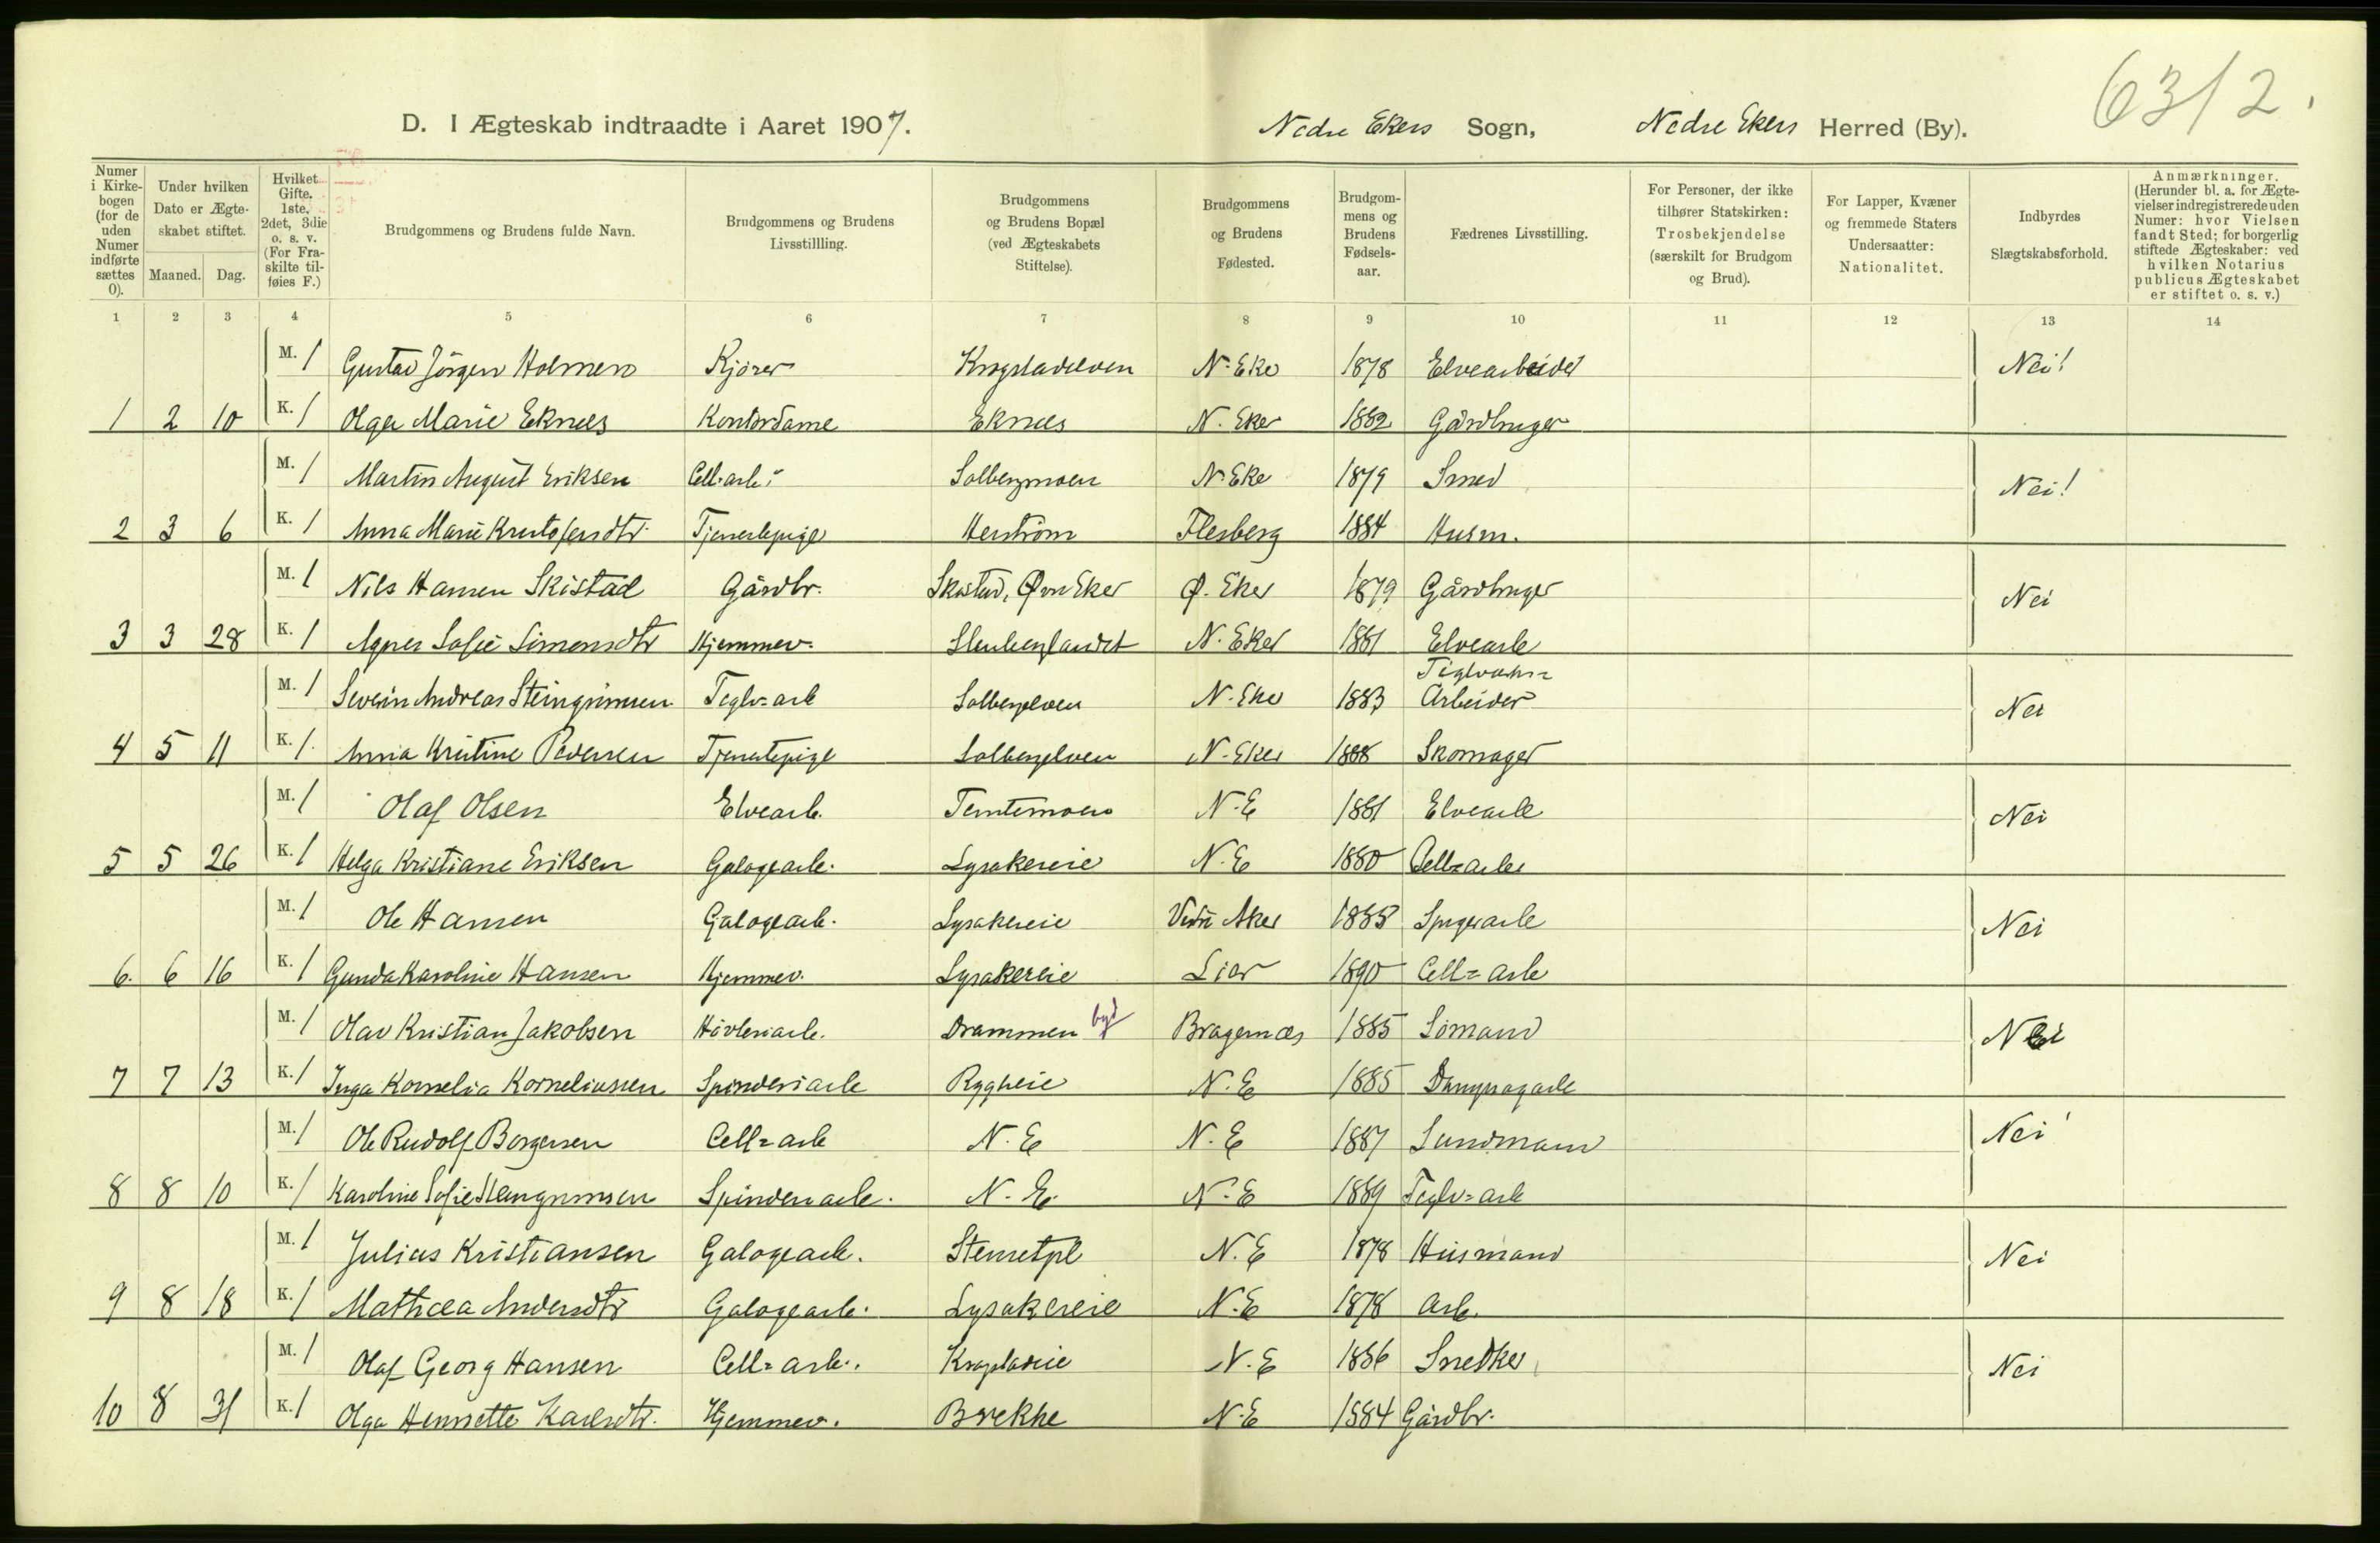 6312.
D. I Ægteskab indtraadte i Aaret 1907. Nedre Ekers Sogn, Nedre Ekers Herred (By).
Numer i Kirkebogen (for de uden Numer indførte sættes 0). Under hvilken Dato er Ægteskabet stiftet. Maaned. Dag. Hvilket Gifte. 1ste, 2det, 3die o. s. v. (For Fraskilte tilføies F.) Brudgommens og Brudens fulde Navn. Brudgommens og Brudens Livsstillling. Brudgommens og Brudens Bopæl (ved Ægteskabets Stiftelse). Brudgommens og Brudens Fødested. Brudgommens og Brudens Fødselsaar. Fædrenes Livsstilling. For Personer, der ikke tilhører Statskirken: Trosbekjendelse (særskilt for Brudgom og Brud). For Lapper, Kvæner og fremmede Staters Undersaatter: Nationalitet. Indbyrdes Slægtskabsforhold. Anmærkninger. (Herunder bl. a. for Ægtevielser indregistrerede uden Numer: hvor Vielsen fandt Sted; for borgerlig stiftede Ægteskaber: ved hvilken Notarius publicus Ægteskabet er stiftet o. s. v.)
1 2 3 4 5 6 7 8 9 10 11 12 13 14
M. 1 Gustav Jörgen Holmen Kjörer Krogstadelven N. Eker 1878 Elvearbeider Nei!
1 2 10 K. 1 Olga Marie Eknæs Kontordame Eknæs N. Eker 1882 Gårdbruger
M. 1 Martin August Eriksen Cell. arb. Solbergmoen N. Eker 1879 Smed Nei!
2 3 6 K. 1 Anna Marie Kristofersdtr Tjenestepige Herström Flesberg 1884 Husm.
M. 1 Nils Hansen Skistad Gårdbr. Skistad, Øvre Eker Ø. Eker 1879 Gårdbruger Nei
3 3 28 K. 1 Agnes Sofie Simensdtr Hjemmev. Stenberglandet N. Eker 1881 Elvearb
Teglværks=
M. 1 Severin Andreas Steingrimsen Teglv=arb Solbergelven N. Eker 1883 Arbeider Nei
4 5 11 K. 1. Anna Kristine Pedersen Tjenestepige Solbergelven N. Eker 1888 Skomager
M. 1 Olaf Olsen Elvearb. Temtemoen N. E 1881 Elvearb Nei
5 5 26 K. 1 Helga Kristiane Eriksen Galogearb. Lysakereie N. E 1880 Cell=arb
M. 1 Ole Hansen Galogearb. Lysakereie Vestre Aker 1885 Spigerarb Nei
6. 6 16 K. 1 Gunda Karoline Hansen Hjemmev. Lysakereie Lier 1890 Cell=arb
M. 1 Olav Kristian Jakobsen Hövleriarb. Drammen by Bragernæs 1885 Sömand Nei
7 7 13 K. 1 Inga Kornelia Korneliussen Spinderiarb Ryggheie N. E 1885 Dampsagarb
M. 1 Ole Rudolf Borgersen Cell=arb N. E N. E 1887 Sundmann Nei
8 8 10 K. 1 Karoline Sofie Steingrimsen Spinderiarb. N. E. N. E 1889 Teglv=arb
M. 1 Julius Kristiansen Galogearb. Stensetpl N. E 1878 Husmand Nei
9 8 18 K. 1 Mathea Andersdtr Galogearb. Lysakereie N. E 1878 Arb.
M. 1 Olaf Georg Hansen Cell=arb. Krogstadeie N. E 1886 Snedker Nei
10 8 31 K. 1 Olga Henriette Karlsdtr. Hjemmev. Brekke N. E 1884 Gårdbr.